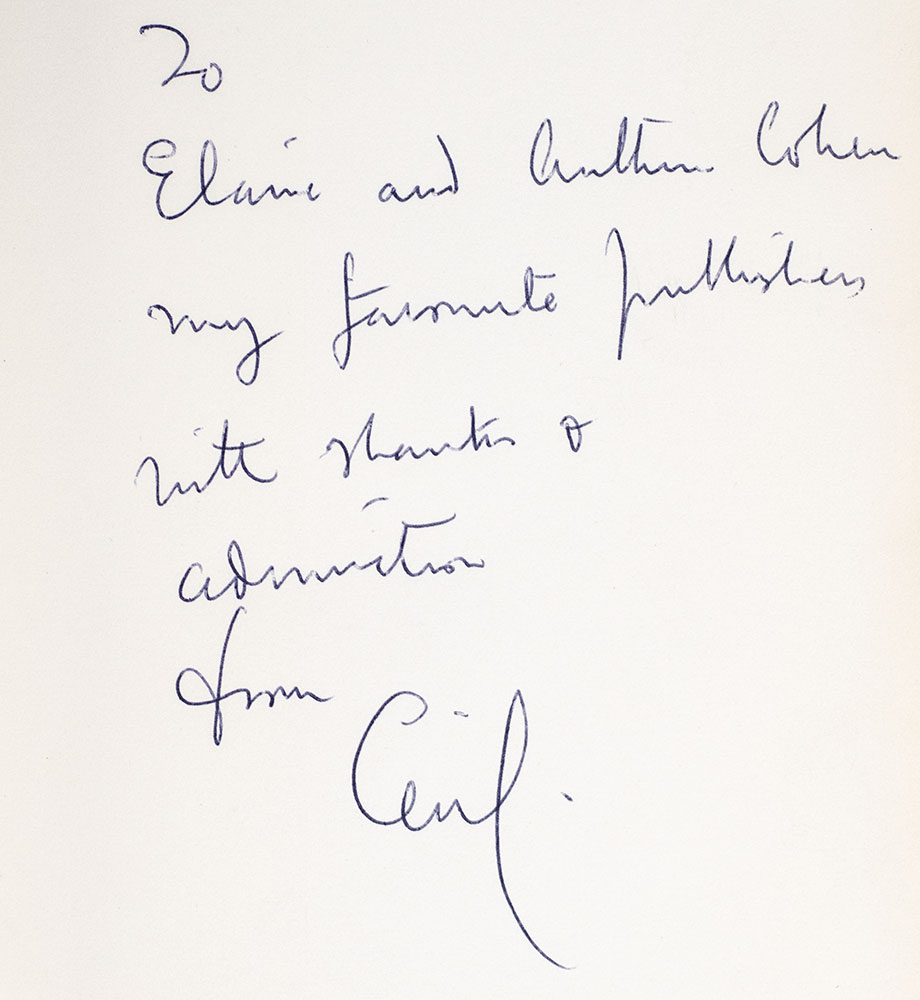 To
Elaine and Arthur Cohen
my favourite publishers
with thanks &
admiration
from
Cecil.